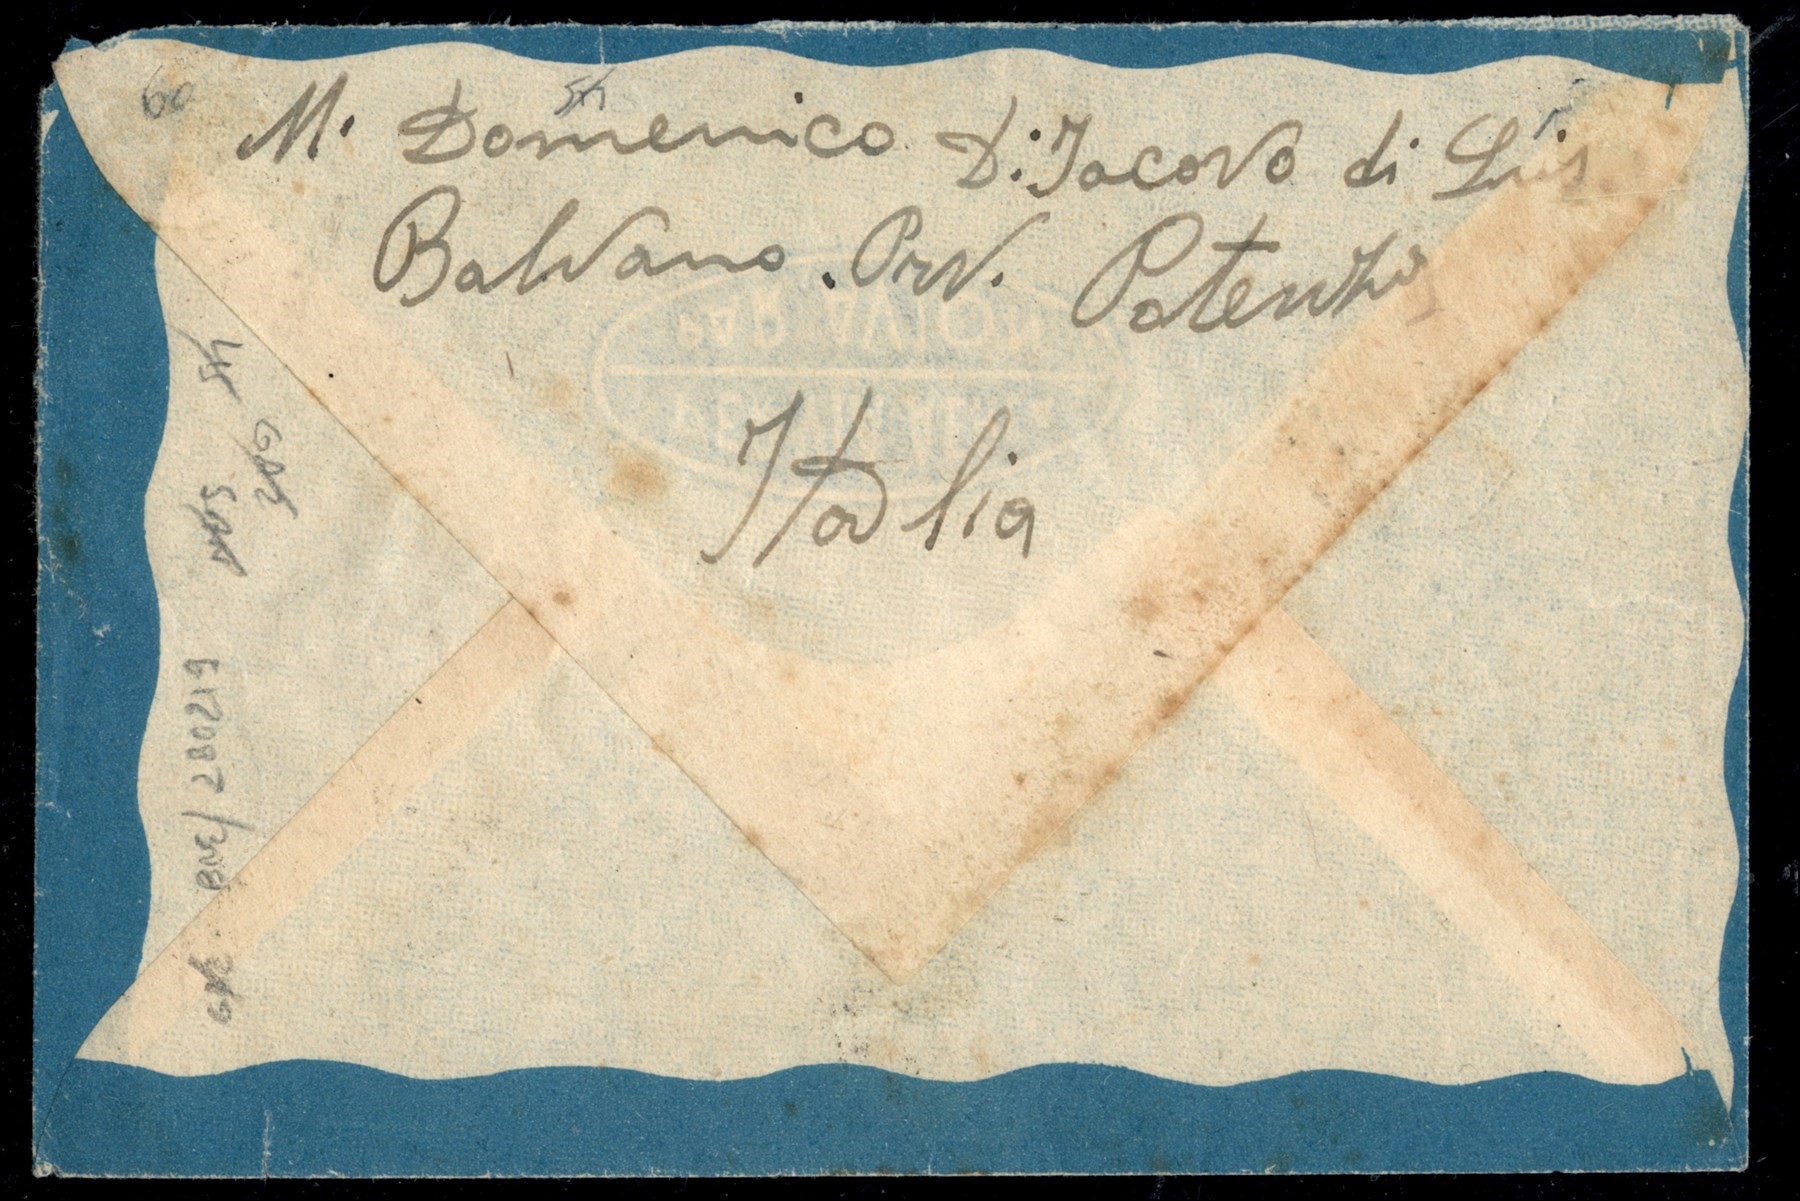 60
M. Domenico Di Iacovo di Luis
Balvano. Prv. Potenza
Italia
PAR AVION
BNE/280219